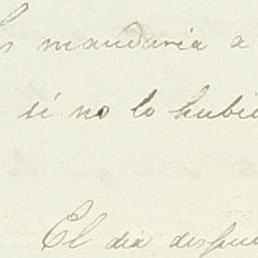 mandaria a
si no lo hubie
El dia despue